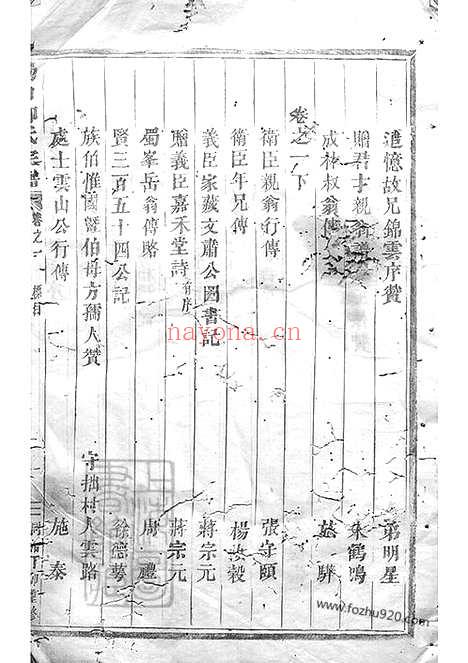 追憶故兄錦雲序贊 弟明星
贈君才親翁 朱鶴鳴
成神叔翁傳 驊
卷之一下
衛臣親翁行傳 張守頤
衛臣年兄傳 楊 毅
義臣家藏文肅公圖書記 蔣宗元
贈義臣嘉禾堂詩有序 蔣宗元
蜀峯岳翁傳略 周禮
賢三百五十四公記 徐德夢
族伯惟國暨伯母方孺人贊 守拙村人雲路
處士雲山公行傳 施泰
氏宗譜 卷之一 總目
nayona.cn
www.fozhu920.com